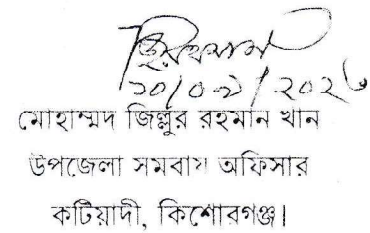 ২০/০৯/২০২৬
মোহাম্মদ জিল্লুর রহমান খান
উপজেলা সমবায় অফিসার
কটিয়াদী, কিশোরগঞ্জ।